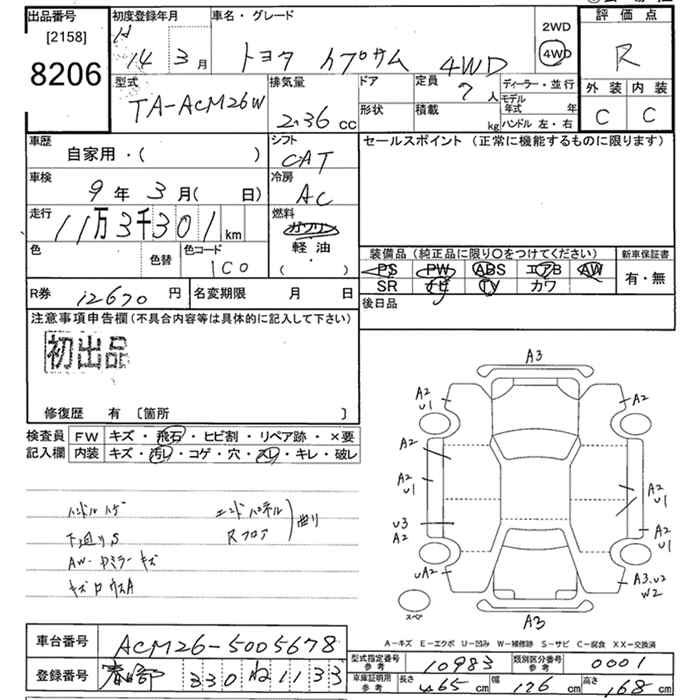 出品番号 初度登録年月 車名・グレード 2WD 評価点
[2158] H 4WD R
8206 14 3月 トヨタ イプサム 4WD
型式 排気量 ドア 定員 7人 ディーラー・並行 外装 内装
TA-ACM26W 2.36 cc 形状 積載 kg モデル年式 年 C C
ハンドル 左・右
車歴 シフト セールスポイント (正常に機能するものに限ります)
自家用・( ) CAT
車検 冷房
9年 3月( 日) AC
走行 燃料
11万3千301km ガソリン
色 色替 色コード 軽油 装備品 (純正品に限り○をつけてください) 新車保証書
1C0 ・( ) PS PW ABS エアB AW 有・無
R券 12670円 名変期限 月 日 SR ナビ TV カワ
注意事項申告欄(不具合内容等は具体的に記入して下さい) 後日品
初出品
修復歴 有 〔箇所 〕
検査員 FW キズ・飛石・ヒビ割・リペア跡・×要
記入欄 内装 キズ・汚レ・コゲ・穴・スレ・キレ・破レ
ハンドルハゲ エンドパネル
下廻りS Rフロア 曲り
AW・ドミラーキズ
A3
A2 A2
U1
A2
A2 A2
U1 U1
U3 A2
A2 U1
UA2 A3.U2
W2
スペア A3
A-キズ E-エクボ U-凹み W-補修跡 S-サビ C-腐食 XX-交換済
車台番号 ACM26-5005678
型式指定番号 参考 10983 類別区分番号 参考 0001
登録番号 春日部 330 ね 1133
車庫証明用 参考 長さ 465cm 幅 176cm 高さ 168cm